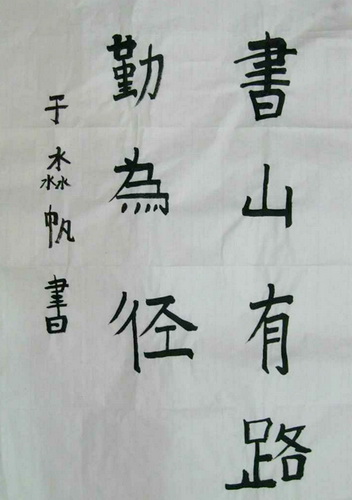 書山有路
勤為径
于淼帆書